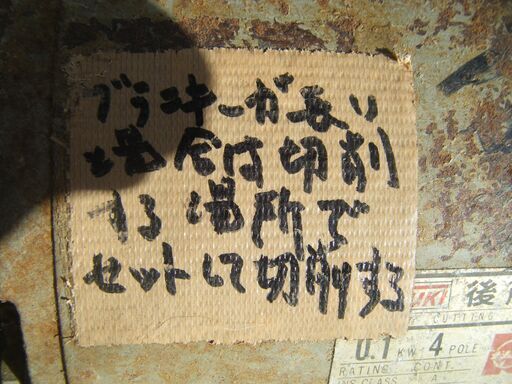 ブランキーが長い
場合は切削
する場所で
セットして切削する
UKI 後
CUTTING
0.1 KW 4 POLE
RATING CONT.
INS.CLASS